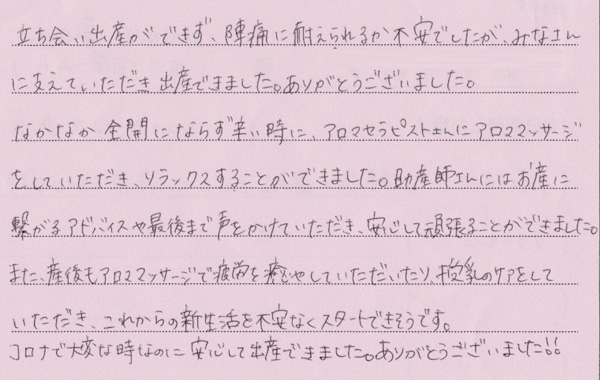 立ち会い出産ができず、陣痛に耐えられるか不安でしたが、みなさん
に支えていただき出産できました。ありがとうございました。
なかなか全開にならず辛い時に、アロマセラピストさんにアロママッサージ
をしていただき、リラックスすることができました。助産師さんにはお産に
繋がるアドバイスや最後まで声をかけていただき、安心して頑張ることができました。
また、産後もアロママッサージで疲労を癒やしていただいたり、授乳のケアをして
いただき、これからの新生活を不安なくスタートできそうです。
コロナで大変な時なのに安心して出産できました。ありがとうございました!!